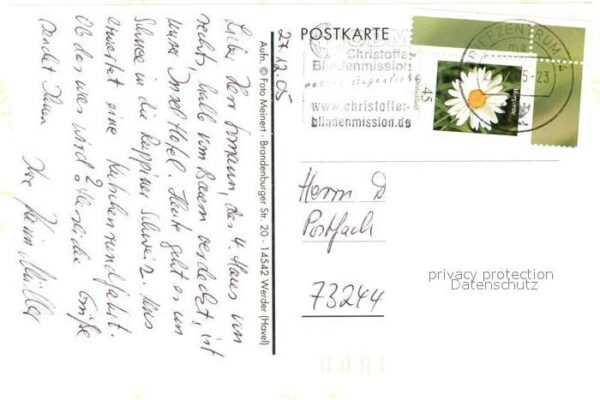 27.12.05
Lieber Herr Formann, das 4. Haus von
rechts, halb vom Baum verdeckt, ist
unser Insel Hotel. Heute geht es im
Schnee in die Ruppiner Schweiz. Uns
erwartet eine Kutschenrundfahrt.
Ob das was wird? Herzliche Grüße
sendet Ihnen Ihre Karin Müller
Aufn. © Foto Meinert - Brandenburger Str. 20 - 14542 Werder (Havel)
POSTKARTE
Christoffel
Blindenmission
www.christoffel-
blindenmission.de
BRIEFZENTRUM
45
Deutschland
Margerite
Herrn D
Postfach
73244
privacy protection
Datenschutz